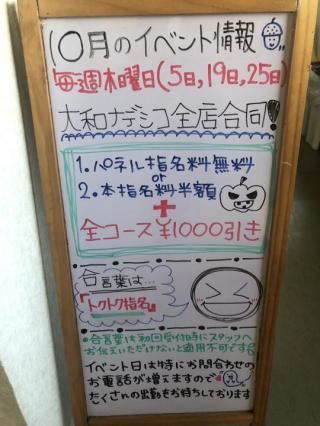 10月のイベント情報
毎週木曜日(5日,19日,25日)
大和ナデシコ全店合同!
1.パネル指名料無料
or
2.本指名料半額
+
全コース¥1000引き
合言葉は…
「トクトク指名」
・合言葉は初回受付時にスタッフへ
お伝えいただけないと適用不可です
イベント日は特にお問合わせの
お電話が増えますので
たくさんの出勤お待ちしております